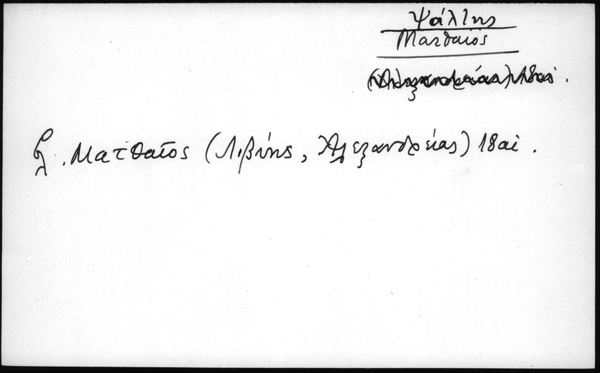 Ψάλτης
Ματθαῖος
(Ἀλεξανδρείας) 18 αἰ.
Ματθαῖος (Λιβύης, Ἀλεξανδρείας) 18 αἰ.